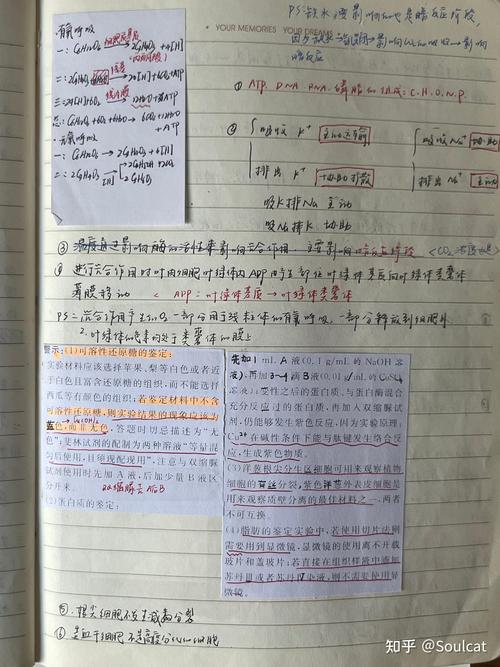 YOUR MEMORIES YOUR DREAMS
PS:缺水主要影响的也是暗反应阶段,
因为缺水→气孔关闭→影响CO₂的吸收→影响
暗反应
有氧呼吸
一:C₆H₁₂O₆ 2C₃H₄O₃+4[H]
总:C₆H₁₂O₆+6O₂+6H₂O → 6CO₂+12H₂O
+ATP
无氧呼吸
一:C₆H₁₂O₆ → 2C₃H₄O₃+4[H]
① ATP. DNA. RNA. 磷脂的组成:C.H.O.N.P.
② 吸收 K⁺ 主动运输
吸收 Na⁺ 协助
排出 K⁺ 协助扩散
排出 Na⁺ 主动
吸K排Na 主动
吸Na排K 协助
③ 温度通过影响酶的活性来影响光合作用,主要影响暗反应阶段
④ 进行光合作用时叶肉细胞叶绿体内ADP由产生部位叶绿体基质向叶绿体类囊体
薄膜移动 < ADP:叶绿体基质→叶绿体类囊体
PS:光合作用产生的O₂一部分用于线粒体的有氧呼吸,一部分释放到细胞外
2.叶绿体的色素均处于类囊体的膜上
警示:(1)可溶性还原糖的鉴定:
实验材料应该选择苹果、梨等白色或者近
于白色且富含还原糖的组织,而不能选择
西瓜等有颜色的组织;若鉴定材料中不含
可溶性还原糖,则实验结果的现象应该为
蓝色,而非无色。答题时切忌描述为“无
色”;斐林试剂的配制为两种溶液“等量混
匀后使用,且须现配现用”,注意与双缩脲
试剂使用时先加A液,后加少量B液区
分开来。 双缩脲先A后B
(2)蛋白质的鉴定:
先加1 mL A液(0.1 g/mL的NaOH溶
液),再加3~4滴B液(0.01 g/mL的CuSO₄
溶液);变性之后的蛋白质,与蛋白酶混合
充分反应过的蛋白质,再加入双缩脲试
剂,仍能够发生紫色反应,因为实验原理:
Cu²⁺在碱性条件下能与肽键发生络合反
应,生成紫色物质。
(3)洋葱根尖分生区细胞可用来观察植物
细胞的有丝分裂,紫色洋葱外表皮细胞是
用来观察质壁分离的最佳材料之一,两者
不可互换。
(4)脂肪的鉴定实验中,若使用切片法则
需要用到显微镜,显微镜的使用离不开载
玻片和盖玻片;若直接在组织样液中滴加
苏丹Ⅲ或者苏丹Ⅳ染液,则不需要使用显
微镜。
⑤ 根尖细胞不发生减数分裂
⑥ 造血干细胞不是高度分化的细胞
知乎 @Soulcat